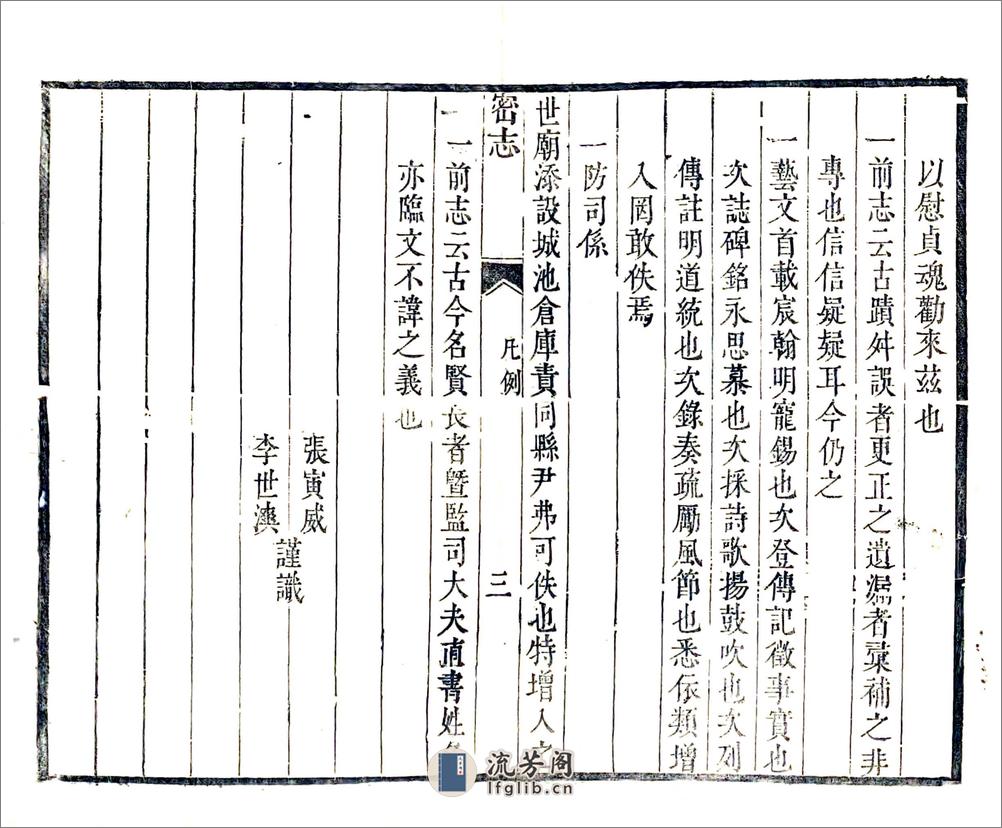 以慰貞魂勸來茲也
一前志云古蹟舛誤者更正之遺漏者彚補之非
專也信信疑疑耳今仍之
一藝文首載宸翰明寵錫也次登傳記徵事實也
次誌碑銘永思慕也次採詩歌揚鼓吹也次列
傳註明道統也次錄奏疏勵風節也悉依類增
入罔敢佚焉
一防司係
世廟添設城池倉庫責同縣尹弗可佚也特增入之
密志
凡例
三
一前志云古今名賢長者暨監司大夫直書姓名
亦臨文不諱之義也
張寅威
李世澳
謹識
流芳阁
lfglib.cn